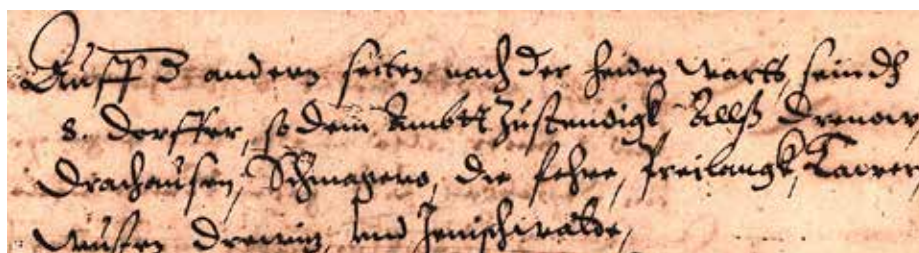 Auff d andern seiten nach der heiden warts, seindt
8. dorffer, so dem Ambtt Zustendigk, Allß Drenow
Drachausen, Schmagero, die fehre, Preilangk, Tawer
Wusten Drewitz und Jenischwalde,